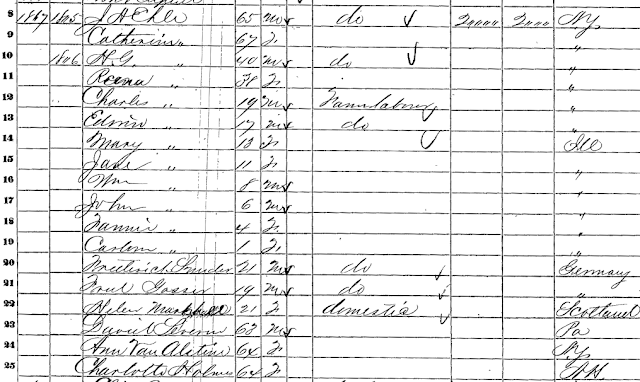 8 1867 1805 J A Ehle 65 m do 20000 2000 NY
9 Catherine " 67 F "
10 1806 H. G. " 40 m do "
11 " 38 F "
12 Charles " 19 m Farm laborer "
13 Edwin " 17 m do "
14 Mary " 13 F Ill
15 Jane " 11 F "
16 Wm " 8 m "
17 John " 6 m "
18 Fannie " 4 F "
19 " 1 F "
20 Snider 21 m do Germany
21 19 m do "
22 Helen 21 F domestic Scotland
23 David 63 m Pa
24 Ann Van Alstine 64 F NY
25 Charlotte Holmes 64 F N.H.